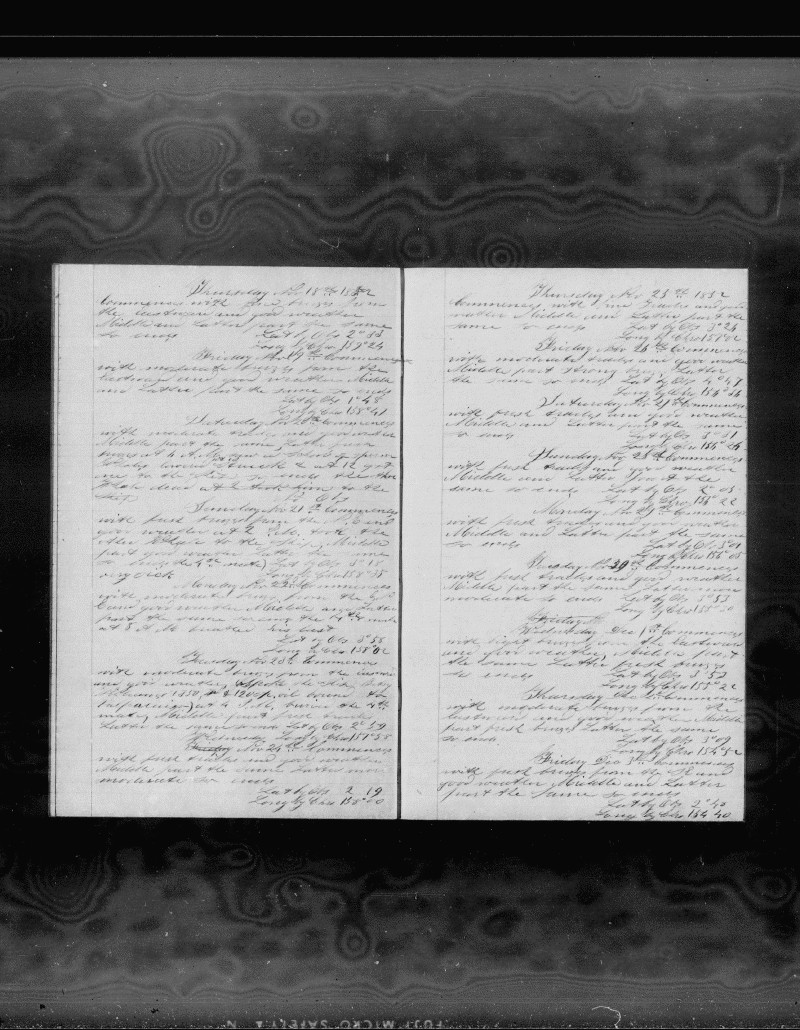 Thursday Nov 18th 1852
Commences with fine breeze from
the Eastward and good weather
Middle and Latter part the same
So ends Lat by Obs 2°53
Long by Chro 159°24
Friday Nov 19th Commences
with moderate breezes from the
Eastward and good weather Middle
and Latter part the same so ends
Lat by Obs 1°48
Long by Chro 158°41
Saturday Nov 20th Commences
with moderate trades and good weather
Middle part the same Latter fresh
breezes at 4 A.M. saw a school of sperm
Whales lowered & struck & at 12 got
one to the ship so ends the
the
ship No Obs
Sunday Nov 21st Commences
with fresh breezes from the N.E. and
good weather at 2 P.M. took the
other Whale to the ship Middle
part good weather Latter the same
so ends the 4th mate Lat by Obs 3°18
very sick Long by Chro 158°35
Monday Nov 22nd Commences
with moderate breezes from the
E and good weather Middle and Latter
part the same so ends the 4th mate
at 8 A.M.
Lat by Obs 3°58
Long by Chro 158°02
Tuesday Nov 23rd Commences
with moderate breezes from the Eastward
and good weather spoke the ship
1850 1200 oil
at 4 P.M. buried the 4th
mate Middle part fresh trades
Latter the same ends Lat by Obs 2°59
Wednesday Long by Chro 157°55
Nov 24th Commences
with fresh trades and good weather
Middle part the same Latter more
moderate So ends
Lat by Obs 2 19
Long by Chro 158°00
Thursday Nov 25th 1852
Commences with fine trades and good
weather Middle and Latter part the
same so ends Lat by Obs 3°24
Long by Chro 157°02
Friday Nov 26th Commences
with moderate trades and good weather
Middle part strong breezes Latter
the same so ends Lat by Obs 4°47
Long by Chro 154°54
Saturday Nov 27th Commences
with fresh trades and good weather
Middle and Latter part the same
so ends Lat by Obs 3°31
Long by Chro 154°
Sunday Nov 28th Commences
with fresh trades and good weather
Middle and Latter part the
same so ends Lat by Obs 2°03
Long by Chro 155°22
Monday Nov 29th Commences
with fresh trades and good weather
Middle and Latter part the same
so ends Lat by Obs 3°01
Long by Chro 155°05
Tuesday Nov 30th Commences
with fresh trades and good weather
Middle part the same Latter more
moderate so ends Lat by Obs 3°53
Long by Chro 155°20
Friday
Wednesday Dec 1st Commences
with light breezes from the Eastward
and good weather Middle part
the same Latter fresh breezes
so ends Lat by Obs 3°52
Long by Chro 155°22
Thursday Dec 2nd Commences
with moderate breezes from the
Eastward and good weather Middle
part fresh breezes Latter the same
so ends Lat by Obs 3°09
Long by Chro 154°52
Friday Dec 3rd Commences
with fresh breezes from the SE and
good weather Middle and Latter
part the same so ends
Lat by Obs 2°40
Long by Chro 154°40
FUJI MICRO SAFETY